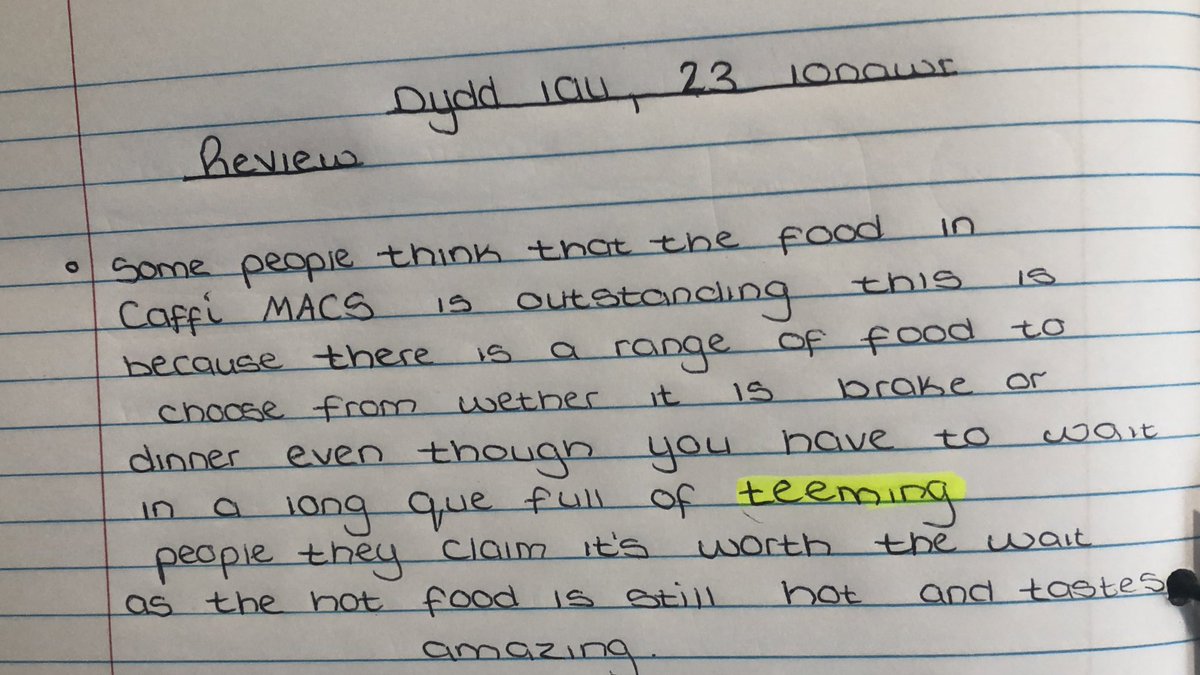 Dydd Iau, 23 Ionawr
Review
• Some people think that the food in
Caffi MACS is outstanding this is
because there is a range of food to
choose from wether it is brake or
dinner even though you have to wait
in a long que full of teeming
people they claim it's worth the wait
as the hot food is still hot and tastes
amazing.